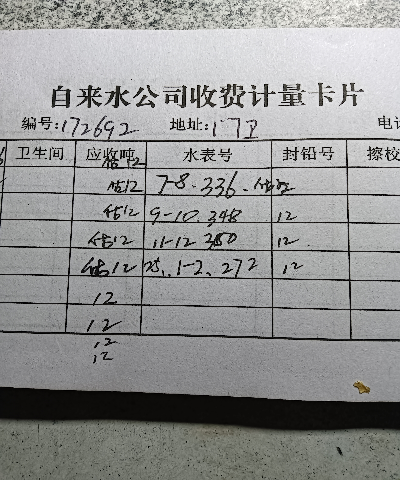 自来水公司收费计量卡片
编号:172692 地址:门卫 电话
卫生间 应收吨 水表号 封铅号 擦校
估12
估12 7-8.336.
估12 9-10.348 12
估12 11-12 360 12
估12 25.1-2.272 12
12
12
12
12